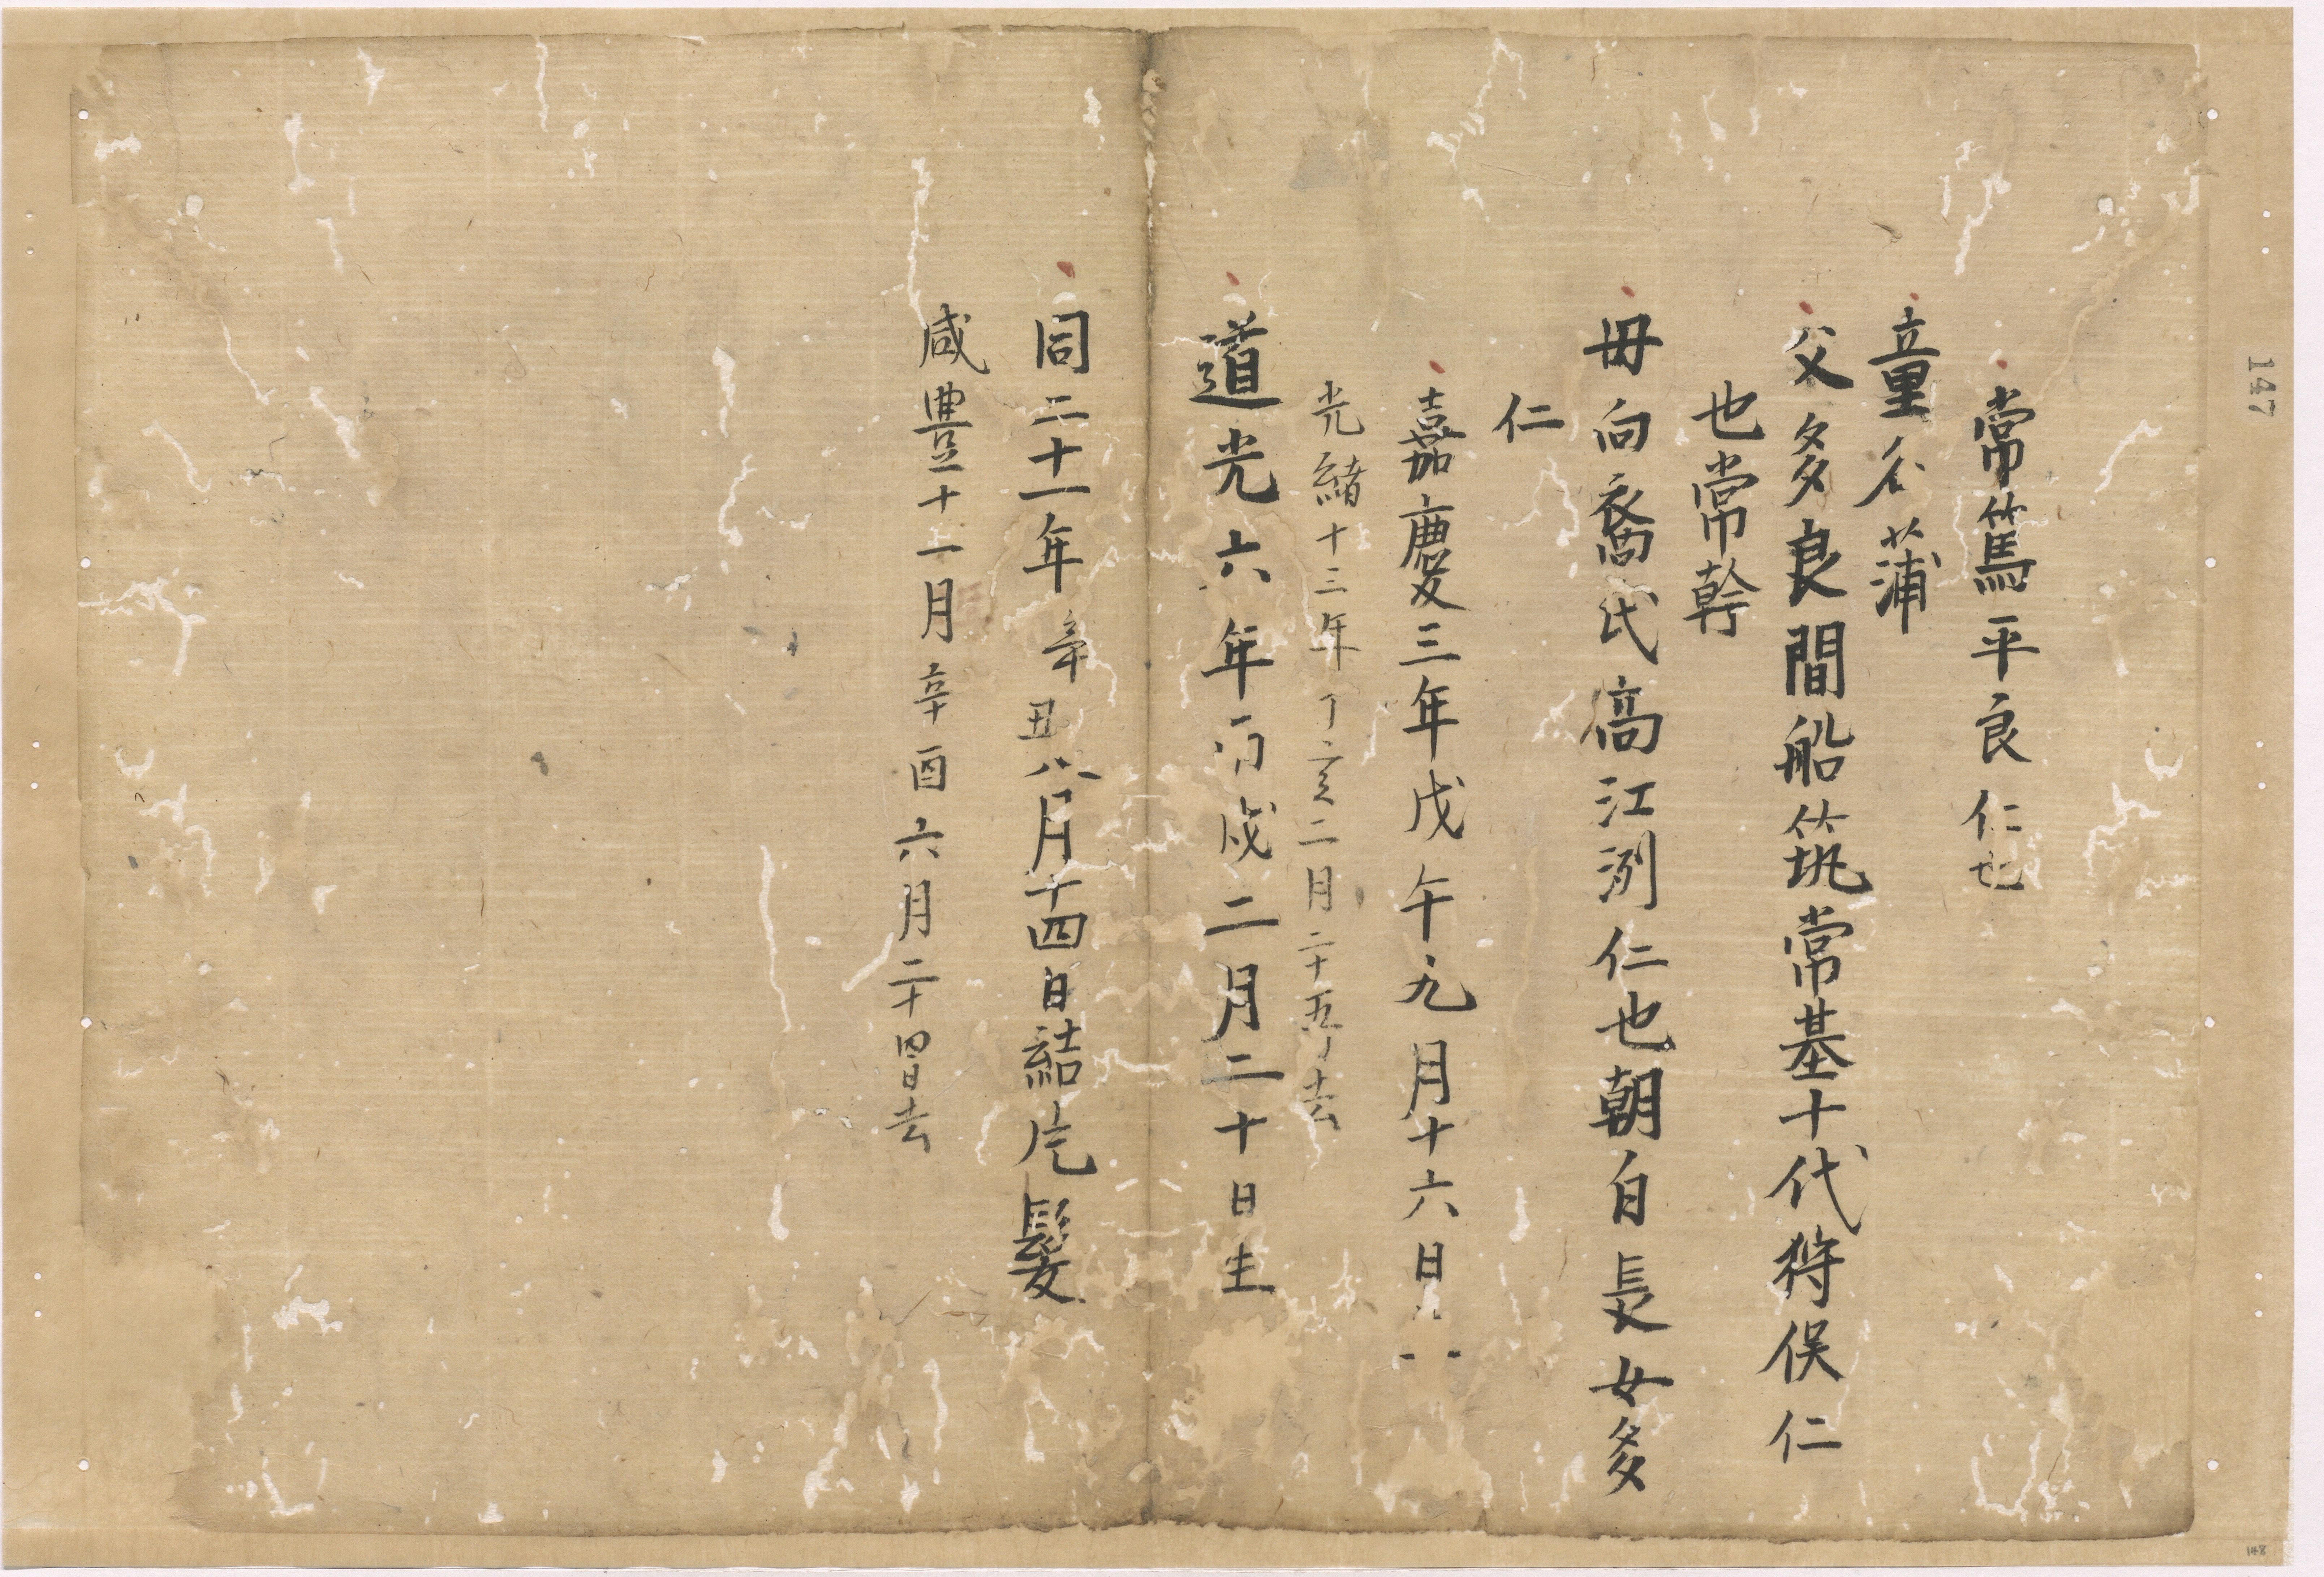 常篤平良仁也
童名蒲
父多良間船筑常基十代狩俣仁
也常幹
毋向裔氏高江洌仁也朝自長女多
仁
嘉慶三年戊午九月十六日
光緒十三年丁亥二月二十五日去
道光六年丙戌二月二十日生
同二十一年辛丑八月十四日結片髪
咸豊十一月辛酉六月二十四日去
147
148